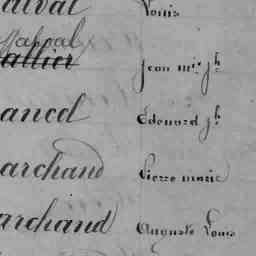 alval Louis
Napal
allier Jean m.ie j.h
ancel Edouard j.h
archand Pierre marie
archand Auguste Louis